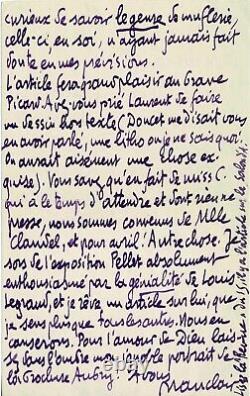 curieux de savoir le genre de muflerie,
celle-ci, en soi, n'ayant jamais fait
doute en mes prévisions.
L'article fera grand plaisir au brave
Picard. Avez-vous prié Laurent de faire
un dessin hors texte (Doucet me disait vous
en avoir parlé, une litho ou je ne sais quoi.
On aurait aisément une chose ex-
quise). Vous savez qu'en fait de miss C.
qui a le temps d'attendre et dont rien ne
presse, nous sommes convenus de Mlle
Claudel, et pour avril! Autre chose. Je
sors de l'exposition Pellet absolument
enthousiasmé par la génialité de Louis
Legrand, et je rêve un article sur lui, que
je sens plus que tous les autres. Nous en
causerons. Pour l'amour de Dieu lais-
sez dans l'ombre mon ignoble portrait de
la brochure Aubry! À vous
Mauclair